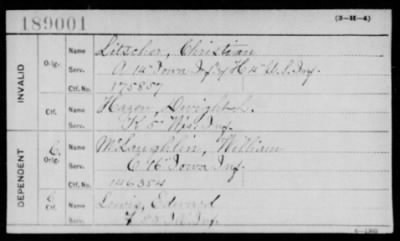 189001 (3-H-4)
INVALID
Orig. Name Litscher, Christian
Serv. A 14" Iowa Inf. & H 4" U.S. Inf.
Ctf. No. 175857
Ctf. Name Hazen, Dwight L.
Serv. K 5" Wis. Inf.
DEPENDENT
C. Orig. Name McLaughlin, William
Serv. C 16" Iowa Inf.
Ctf. No. 146354
C. Ctf. Name Lewis, Edward
Serv. Inf.